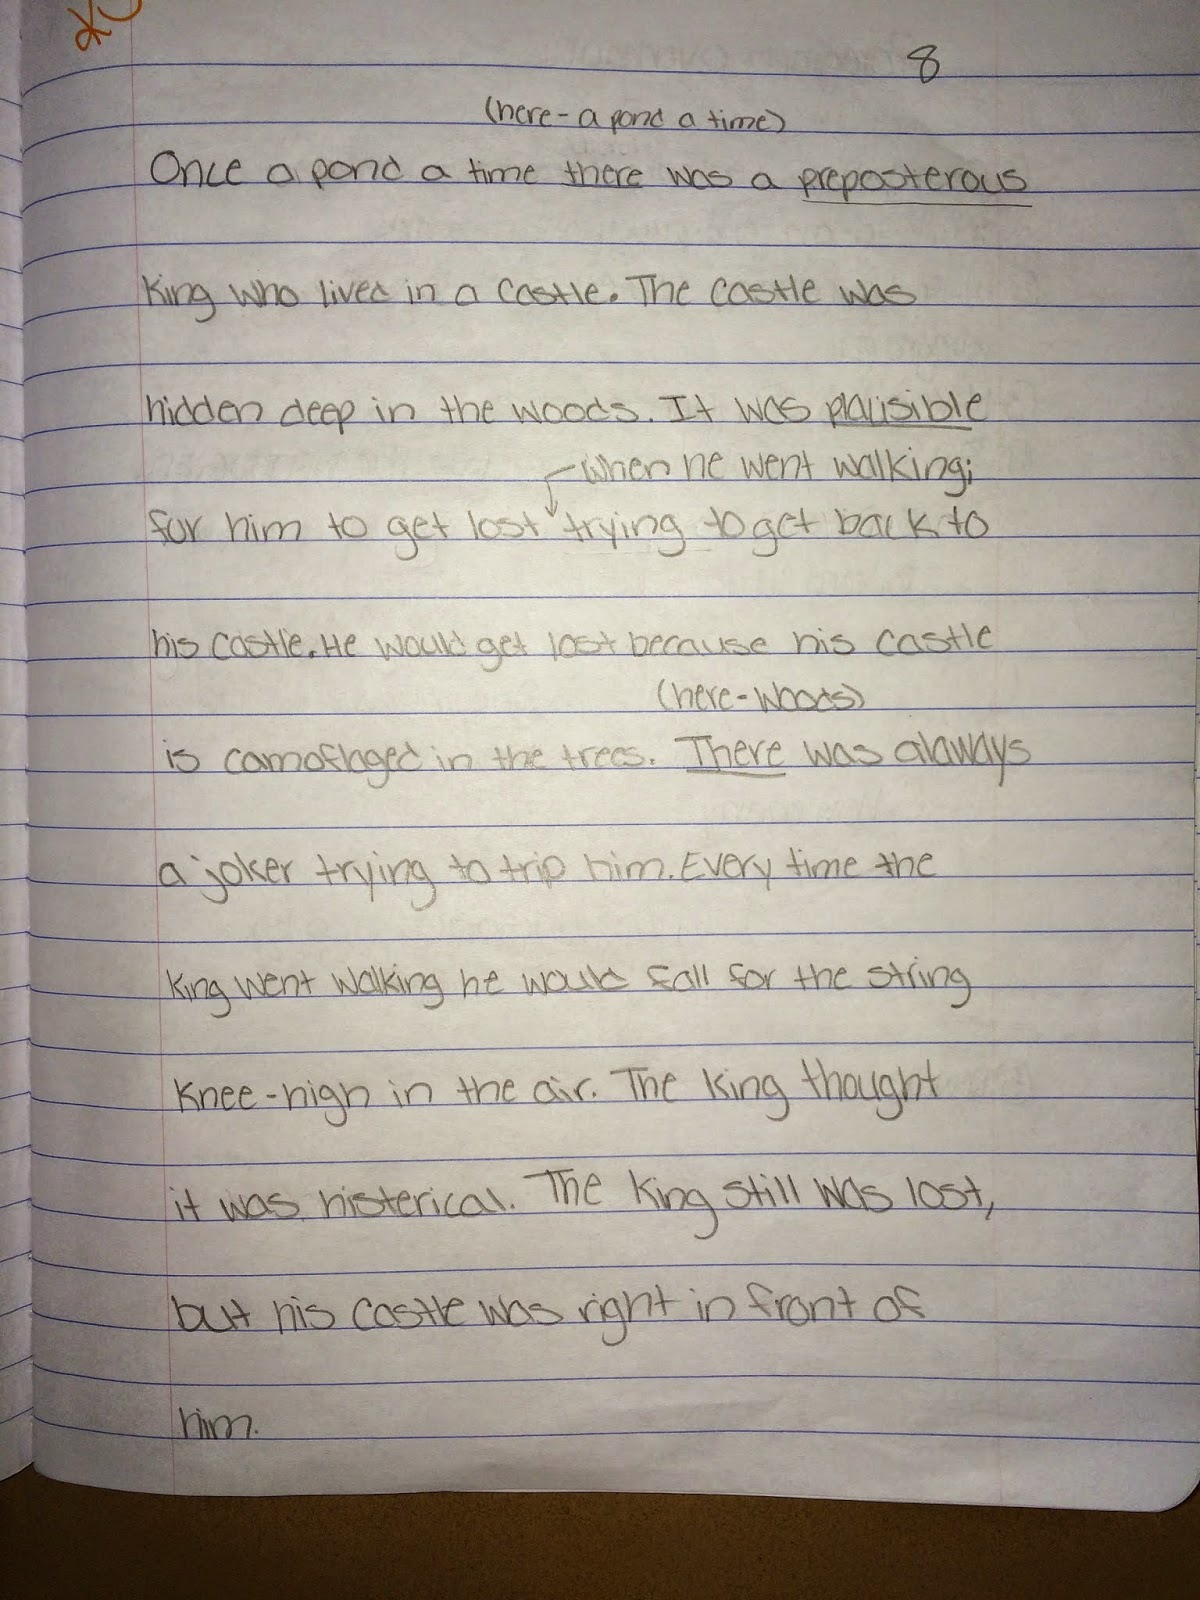 8
(here-a pond a time)
Once a pond a time there was a preposterous
King who lived in a castle. The castle was
hidden deep in the woods. It was plausible
when he went walking;
for him to get lost trying to get back to
his castle. He would get lost because his castle
(here-woods)
is camoflaged in the trees. There was alaways
a joker trying to trip him. Every time the
King went walking he would fall for the string
Knee-high in the air. The King thought
it was histerical. The King still was lost,
but his castle was right in front of
him.